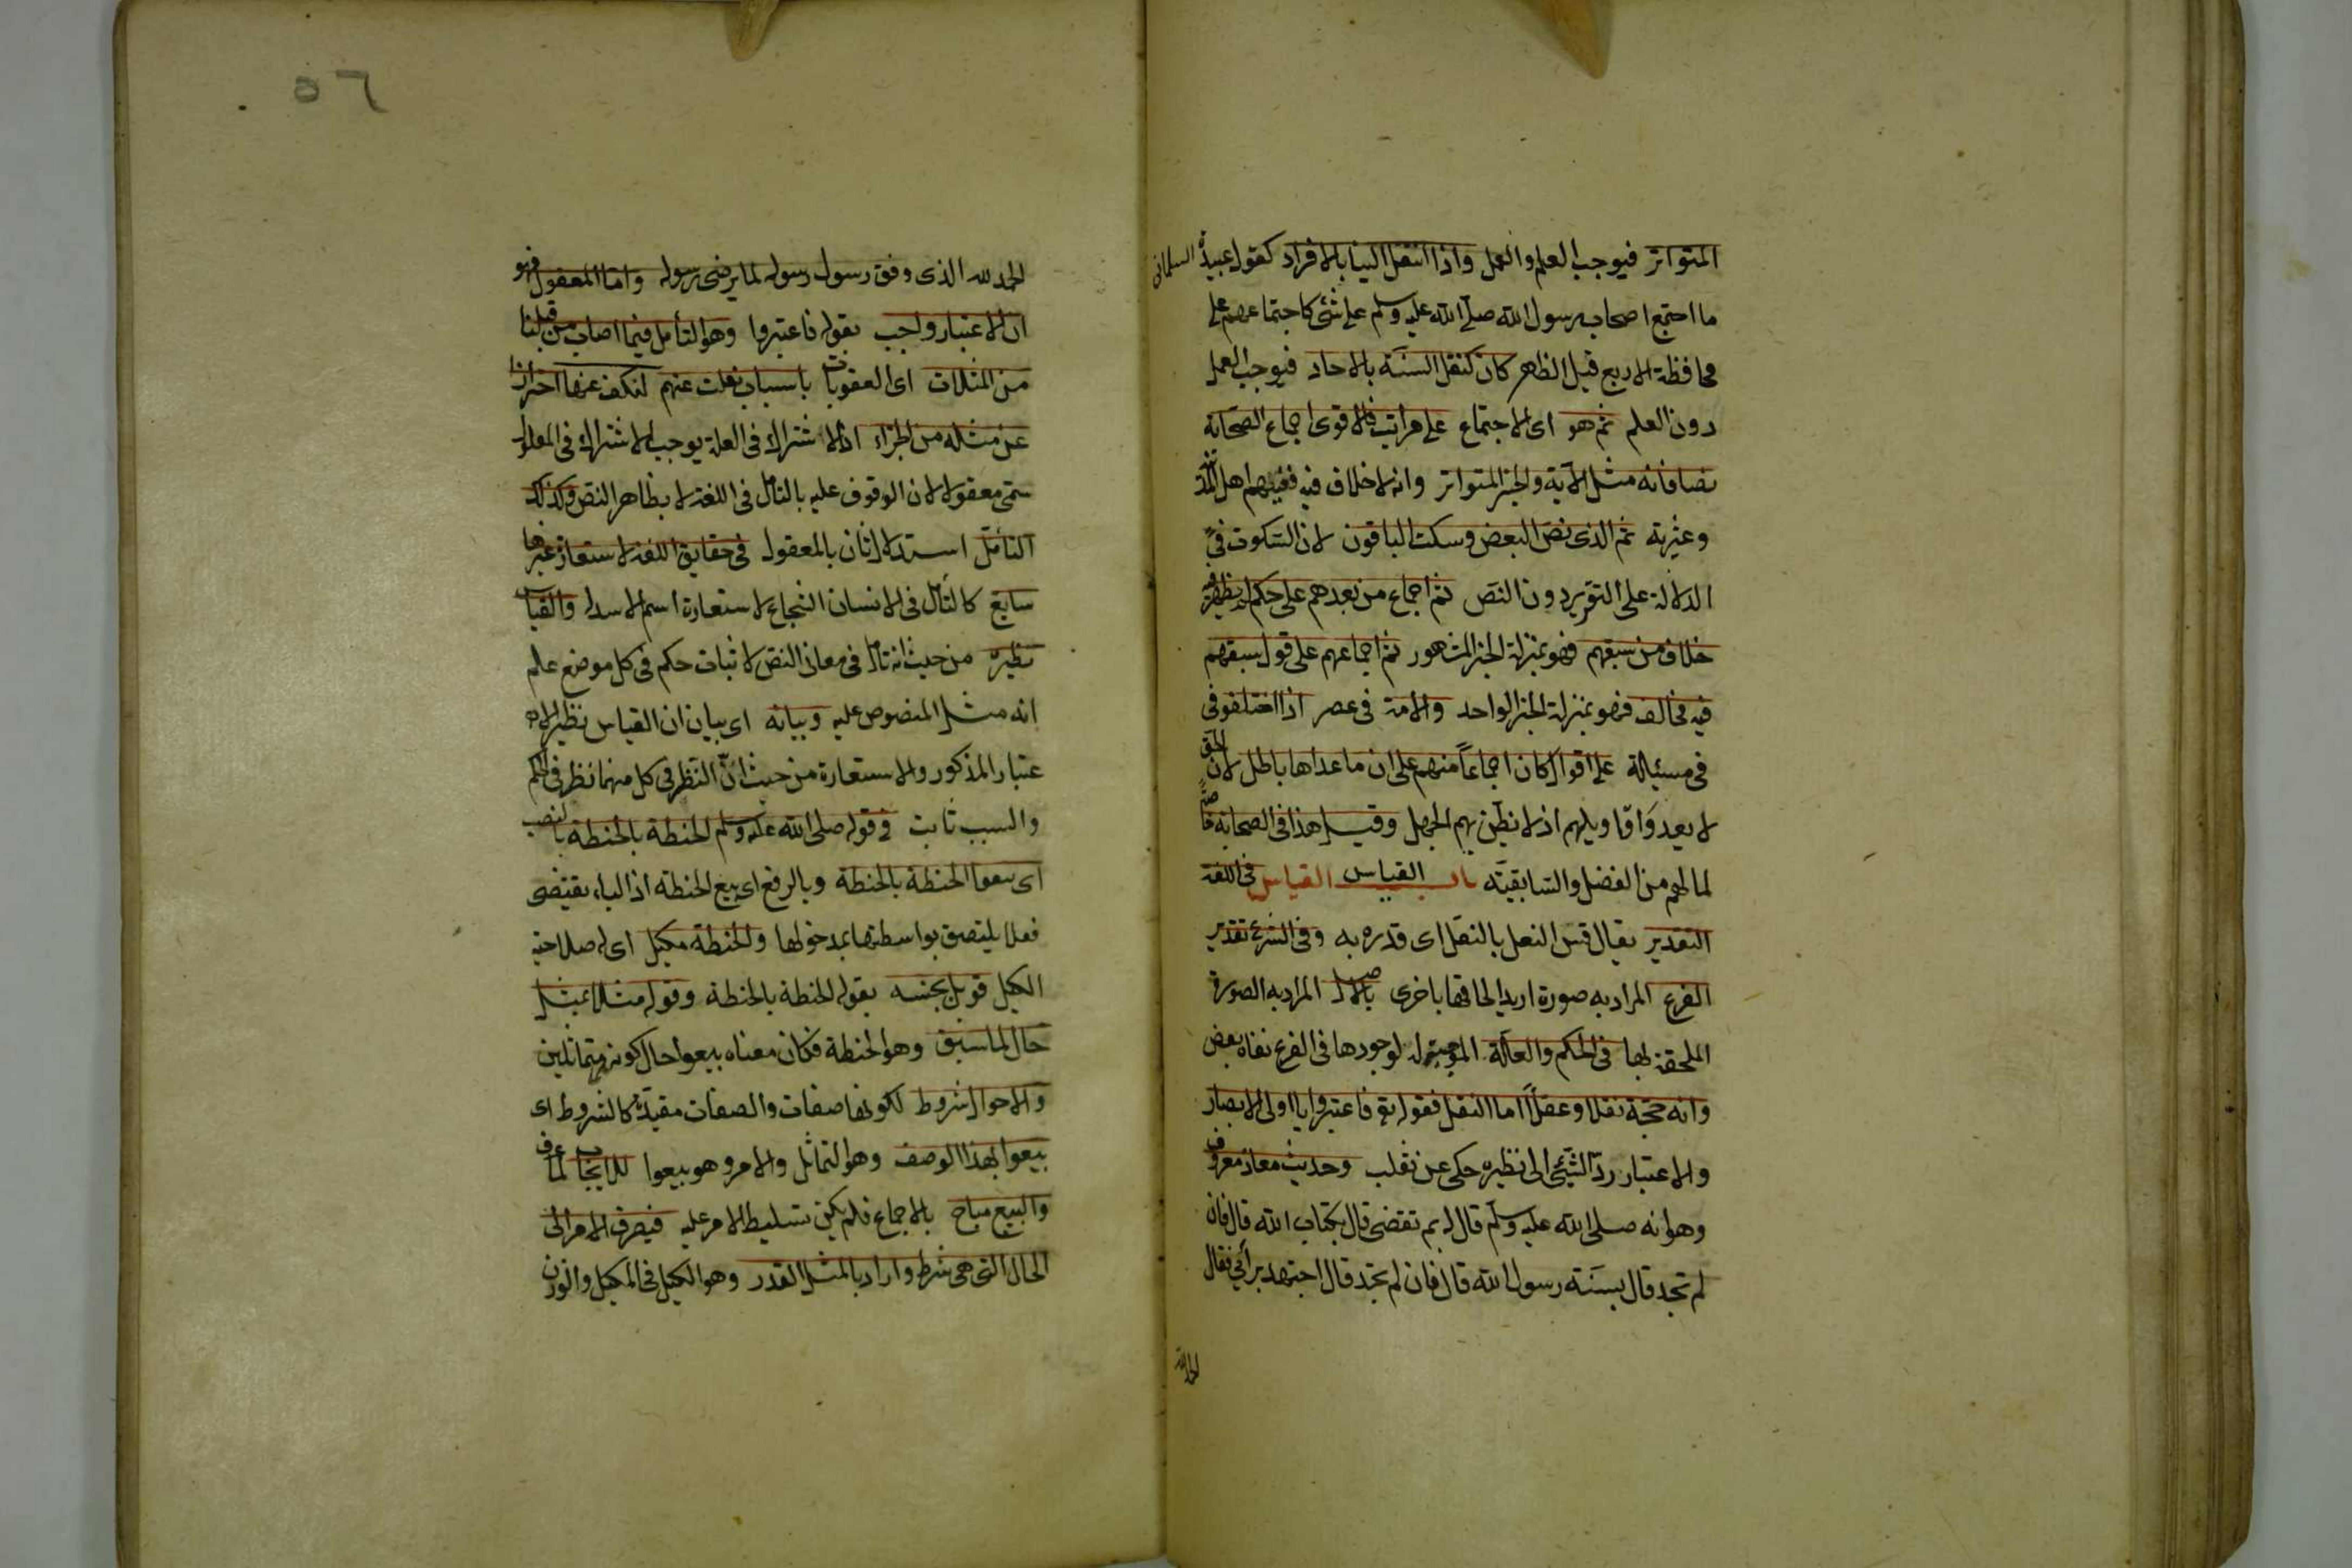 المتواتر فيوجب العلم والعمل واذا انتقل الينا بالافراد كقول عبيدة السلمانى
ما اجتمع اصحاب رسول الله صلى الله عليه وسلم على شئ كاجتماعهم على
محافظة الاربع قبل الظهر كان كنقل السنة بالاحاد فيوجب العمل
دون العلم ثم هو اى الاجتماع على مراتب فالاقوى اجماع الصحابة
نصا فانه مثل الآية والخبر المتواتر وانه لا خلاف فيه ففيهم اهل المدينة
وعترته ثم الذى نص البعض وسكت الباقون لان السكوت فى
الدلالة على التقرير دون النص ثم اجماع من بعدهم على حكم لم يظهر فيه
خلاف من سبقهم فهو بمنزلة الخبر المشهور ثم اجماعهم على قول سبقهم
فيه مخالف فهو بمنزلة الخبر الواحد والامة فى عصر اذا اختلفو فى
فى مسئلة على اقوال كان اجماعاً منهم على ان ما عداها باطل لان الحق
لا يعدو اقاويلهم اذ لا نظن بهم الجهل وقيل هذا فى الصحابة خاصة
لما لهم من الفضل والسابقية باب القياس القياس فى اللغة
التقدير يقال قس النعل بالنعل اى قدره به وفى الشرع تقدير
الفرع المراد به صورة اريد الحاقها باخرى بالاصل المراد به الصورة
الملحقة بها فى الحكم والعلة الموجبة له لوجودها فى الفرع نفاه بعض
وانه حجة نقلا وعقلاً اما النقل فقوله تع فاعتبروا يا اولى الابصار
والاعتبار ردّ الشئ الى نظيره حكى عن ثعلب وحديث معاذ معروف
وهو انه صلى الله عليه وسلم قال له بم تقضى قال بكتاب الله قال فان
لم تجد قال بسنة رسول الله قال فان لم تجد قال اجتهد برأى فقال
الحمد لله
٥٦
الحمد لله الذى وفق رسول رسوله لما يرضى رسوله واما المعقول فهو
ان الاعتبار واجب بقوله فاعتبروا وهو التأمل فيما اصاب من قبلنا
من المثلات اى العقوبات باسباب نقلت عنهم لنكف عنها احترازا
عن مثله من الجزاء اذ الاشتراك فى العلة يوجب الاشتراك فى المعلول
سمى معقولا لان الوقوف عليه بالتأمل فى اللغة لا بظاهر النص وكذلك
التأمل استدلال ثان بالمعقول فى حقايق اللغة لاستعارة غيرها
سايغ كالتأمل فى الانسان الشجاع لاستعارة اسم الاسد والقياس
نظيره من حيث انه تأمل فى معانى النص لاثبات حكم فى كل موضع علم
انه مثل المنصوص عليه وبيانه اى بيان ان القياس نظير الا
عتبار المذكور والاستعارة من حيث انّ النظر فى كل منهما نظر فى الحكم
والسبب ثابت فى قوله صلى الله عليه وسلم الحنطة بالحنطة بالنصب
اى بيعوا الحنطة بالحنطة وبالرفع اى بيع الحنطة اذ الباء يقتضى
فعلا يلتصق بواسطتها بمدخولها والحنطة مكيل اى له صلاحية
الكيل قوبل بجنسه بقوله الحنطة بالحنطة وقوله مثلا بمثل
حال لما سبق وهو الحنطة فكان معناه بيعوا حال كونه متماثلين
والاحوال شروط لكونها صفات والصفات مقيدة كالشروط اى
بيعوا بهذا الوصف وهو التماثل والامر وهو بيعوا للايجاب لما عرف
والبيع مباح بالاجماع فلم يكن تسليط الامر عليه فيصرف الامر الى
الحال التى هى شرط واراد بالمثل القدر وهو الكيل فى المكيل والوزن